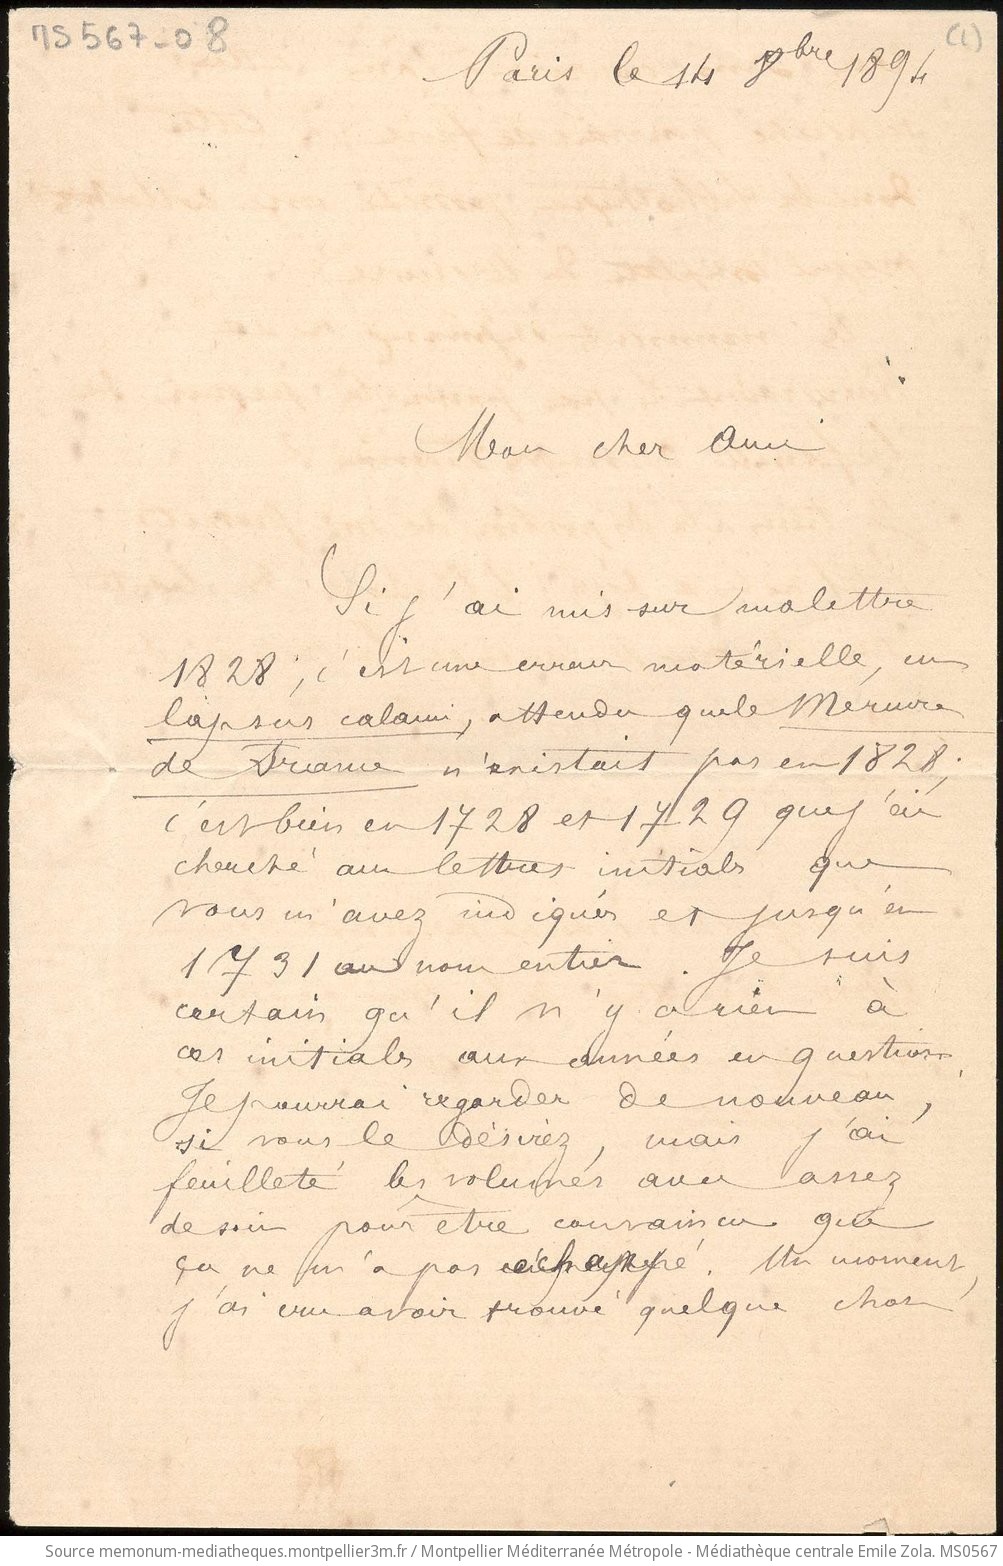 MS 567-08
(1)
Paris le 14 8bre 1894
Mon cher Ami
Si j'ai mis sur ma lettre
1828, c'est une erreur matérielle, un
lapsus calami, attendu que le Mercure
de France n'existait pas en 1828;
c'est bien en 1728 et 1729 que j'ai
cherché aux lettres initials que
vous m'avez indiqués et jusqu'en
1731 au nom entier. Je suis
certain qu'il n'y a rien à
ces initials aux années en question.
Je pourrai regarder de nouveau,
si vous le désirez, mais j'ai
feuilleté les volumes avec assez
de soin pour être convaincu que
ça ne m'a pas échappé. Un moment,
j'ai cru avoir trouvé quelque chose
Source memonum-mediatheques.montpellier3m.fr / Montpellier Méditerranée Métropole - Médiathèque centrale Emile Zola. MS0567